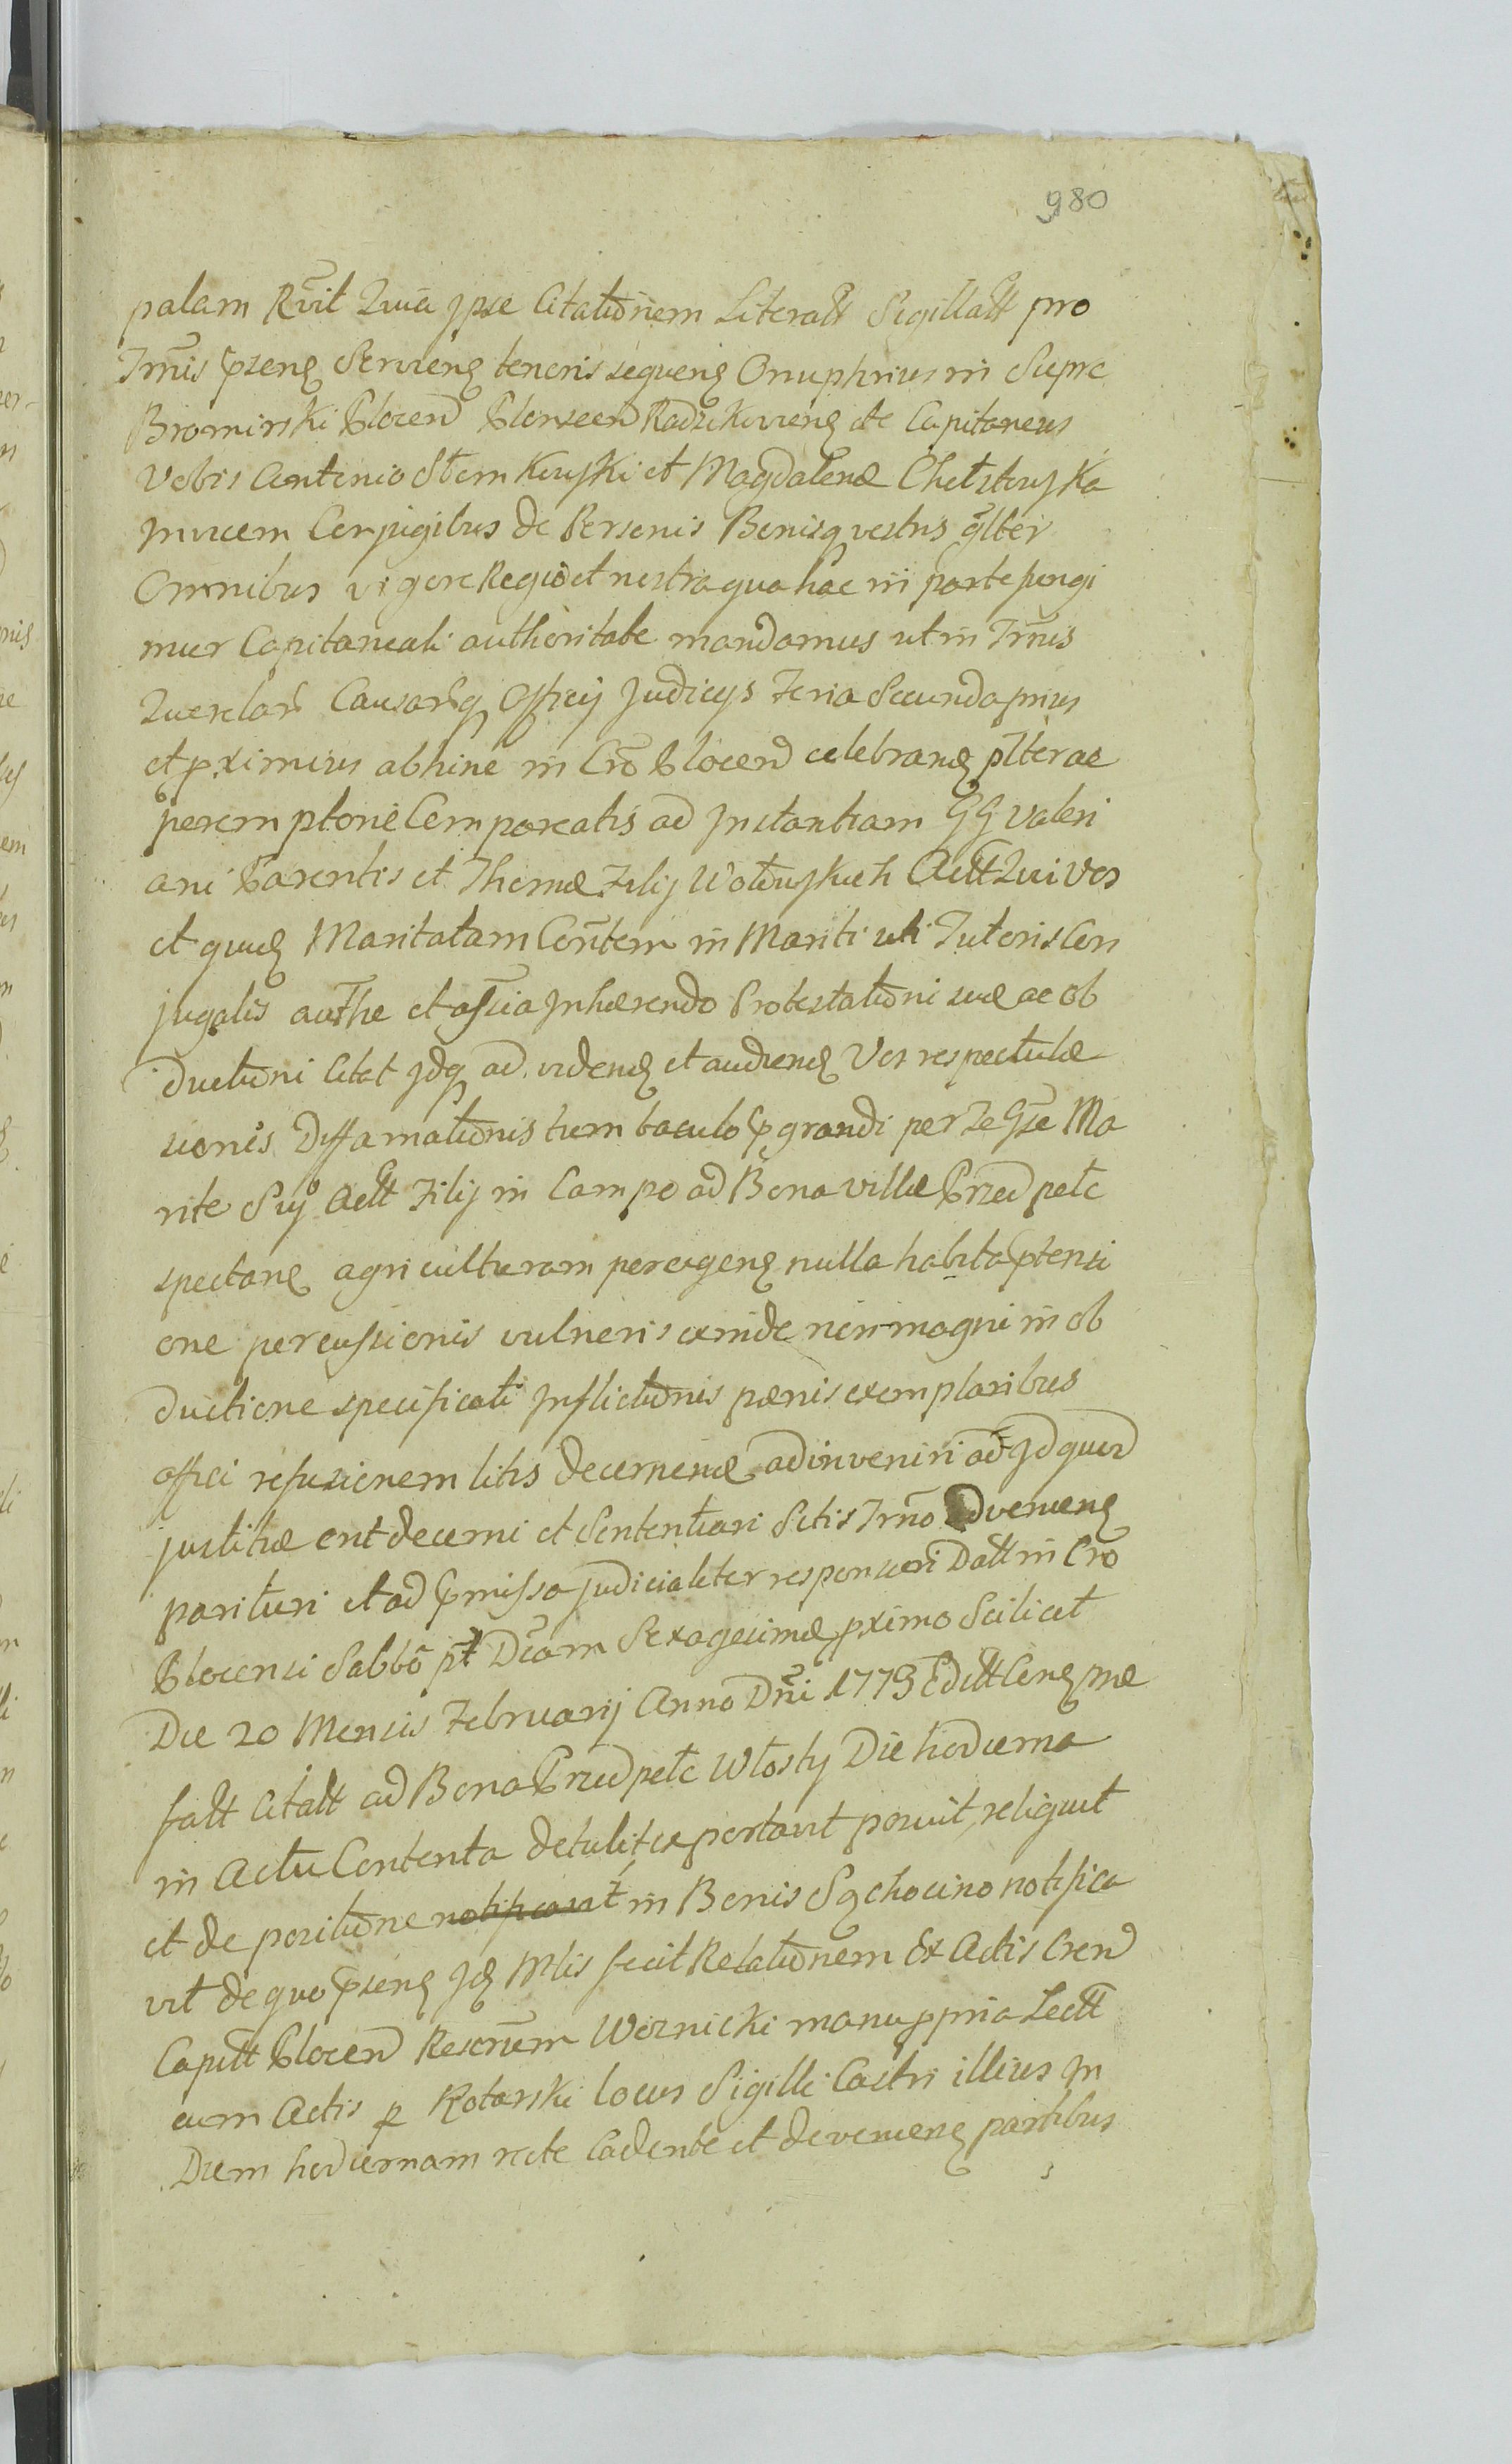 980
palam Rvit Quia Jpse Citationem Literalt Sigillatt pro
Trnis pseng Servieng tenoris sequeng Onuphrius in Supre
Bromirski Plocen Plonscen Radzikovieng etc Capitaneus
Vobis Antonio Slomkowski et Magdalenæ Chelstowska
Jnvicem Conjugibus de Personis Bonisq vestris glter
Omnibus vigore Regio et nostra qua hac in parte fungi
mur Capitaneali authoritate mandamus ut in Trnis
Querelar Causarq Officij Judicys Feria Secunda prius
et pximius abhinc in Cro Plocen celebrang plter ac
peremptorie Compareatis ad Jnstantiam GG Valeri
ani Parentis et Thomæ Filij Wolowskich Actt Qui Vos
et quidg Maritatam Contem in Mariti uti Tutoris Con
jugalis authe et assia Jnhærendo Protestationi suæ ac ob
ductioni Citat Jdq ad videndg et audiendg Vos respectu læ
sionis Diffamationis tum baculo pgrandi per Te Gse Ma
rite Suj Actt Filij in Campo ad Bona villæ Przedpelc
spectang agriculturam peragendg nulla habita ptensi
one percussionis vulneris exinde non magni in ob
ductione specificati Jnflictionis pænis exemplaribus
affici refusionem litis decernendæ adinveniri ad Jd quod
justitiæ erit decerni et Sententiari Sitis Trno Adveniendg
parituri et ad pmissa judicialiter responsuri Datt in Cro
Plocensi Sabbo pt Dcam Sexagesimæ pximo Scilicet
Die 20 Mensis Februarij Anno Dni 1773 Editt Cong mæ
fatt Citatt ad Bona Przedpelc Wlosty Die hodierna
in Actu Contenta detulit exportavit posuit, reliquit
et de positione notificavit in Bonis Sychocino notifica
vit de quo pseng Jdg Mlis fecit Relationem Ex Actis Cren
Capitt Plocen Rescrtum Woznicki manu ppria Lectt
cum Actis p Kotarski locus Sigilli Castri illius In
Diem hodiernam recte Cadente et devenieng partibus